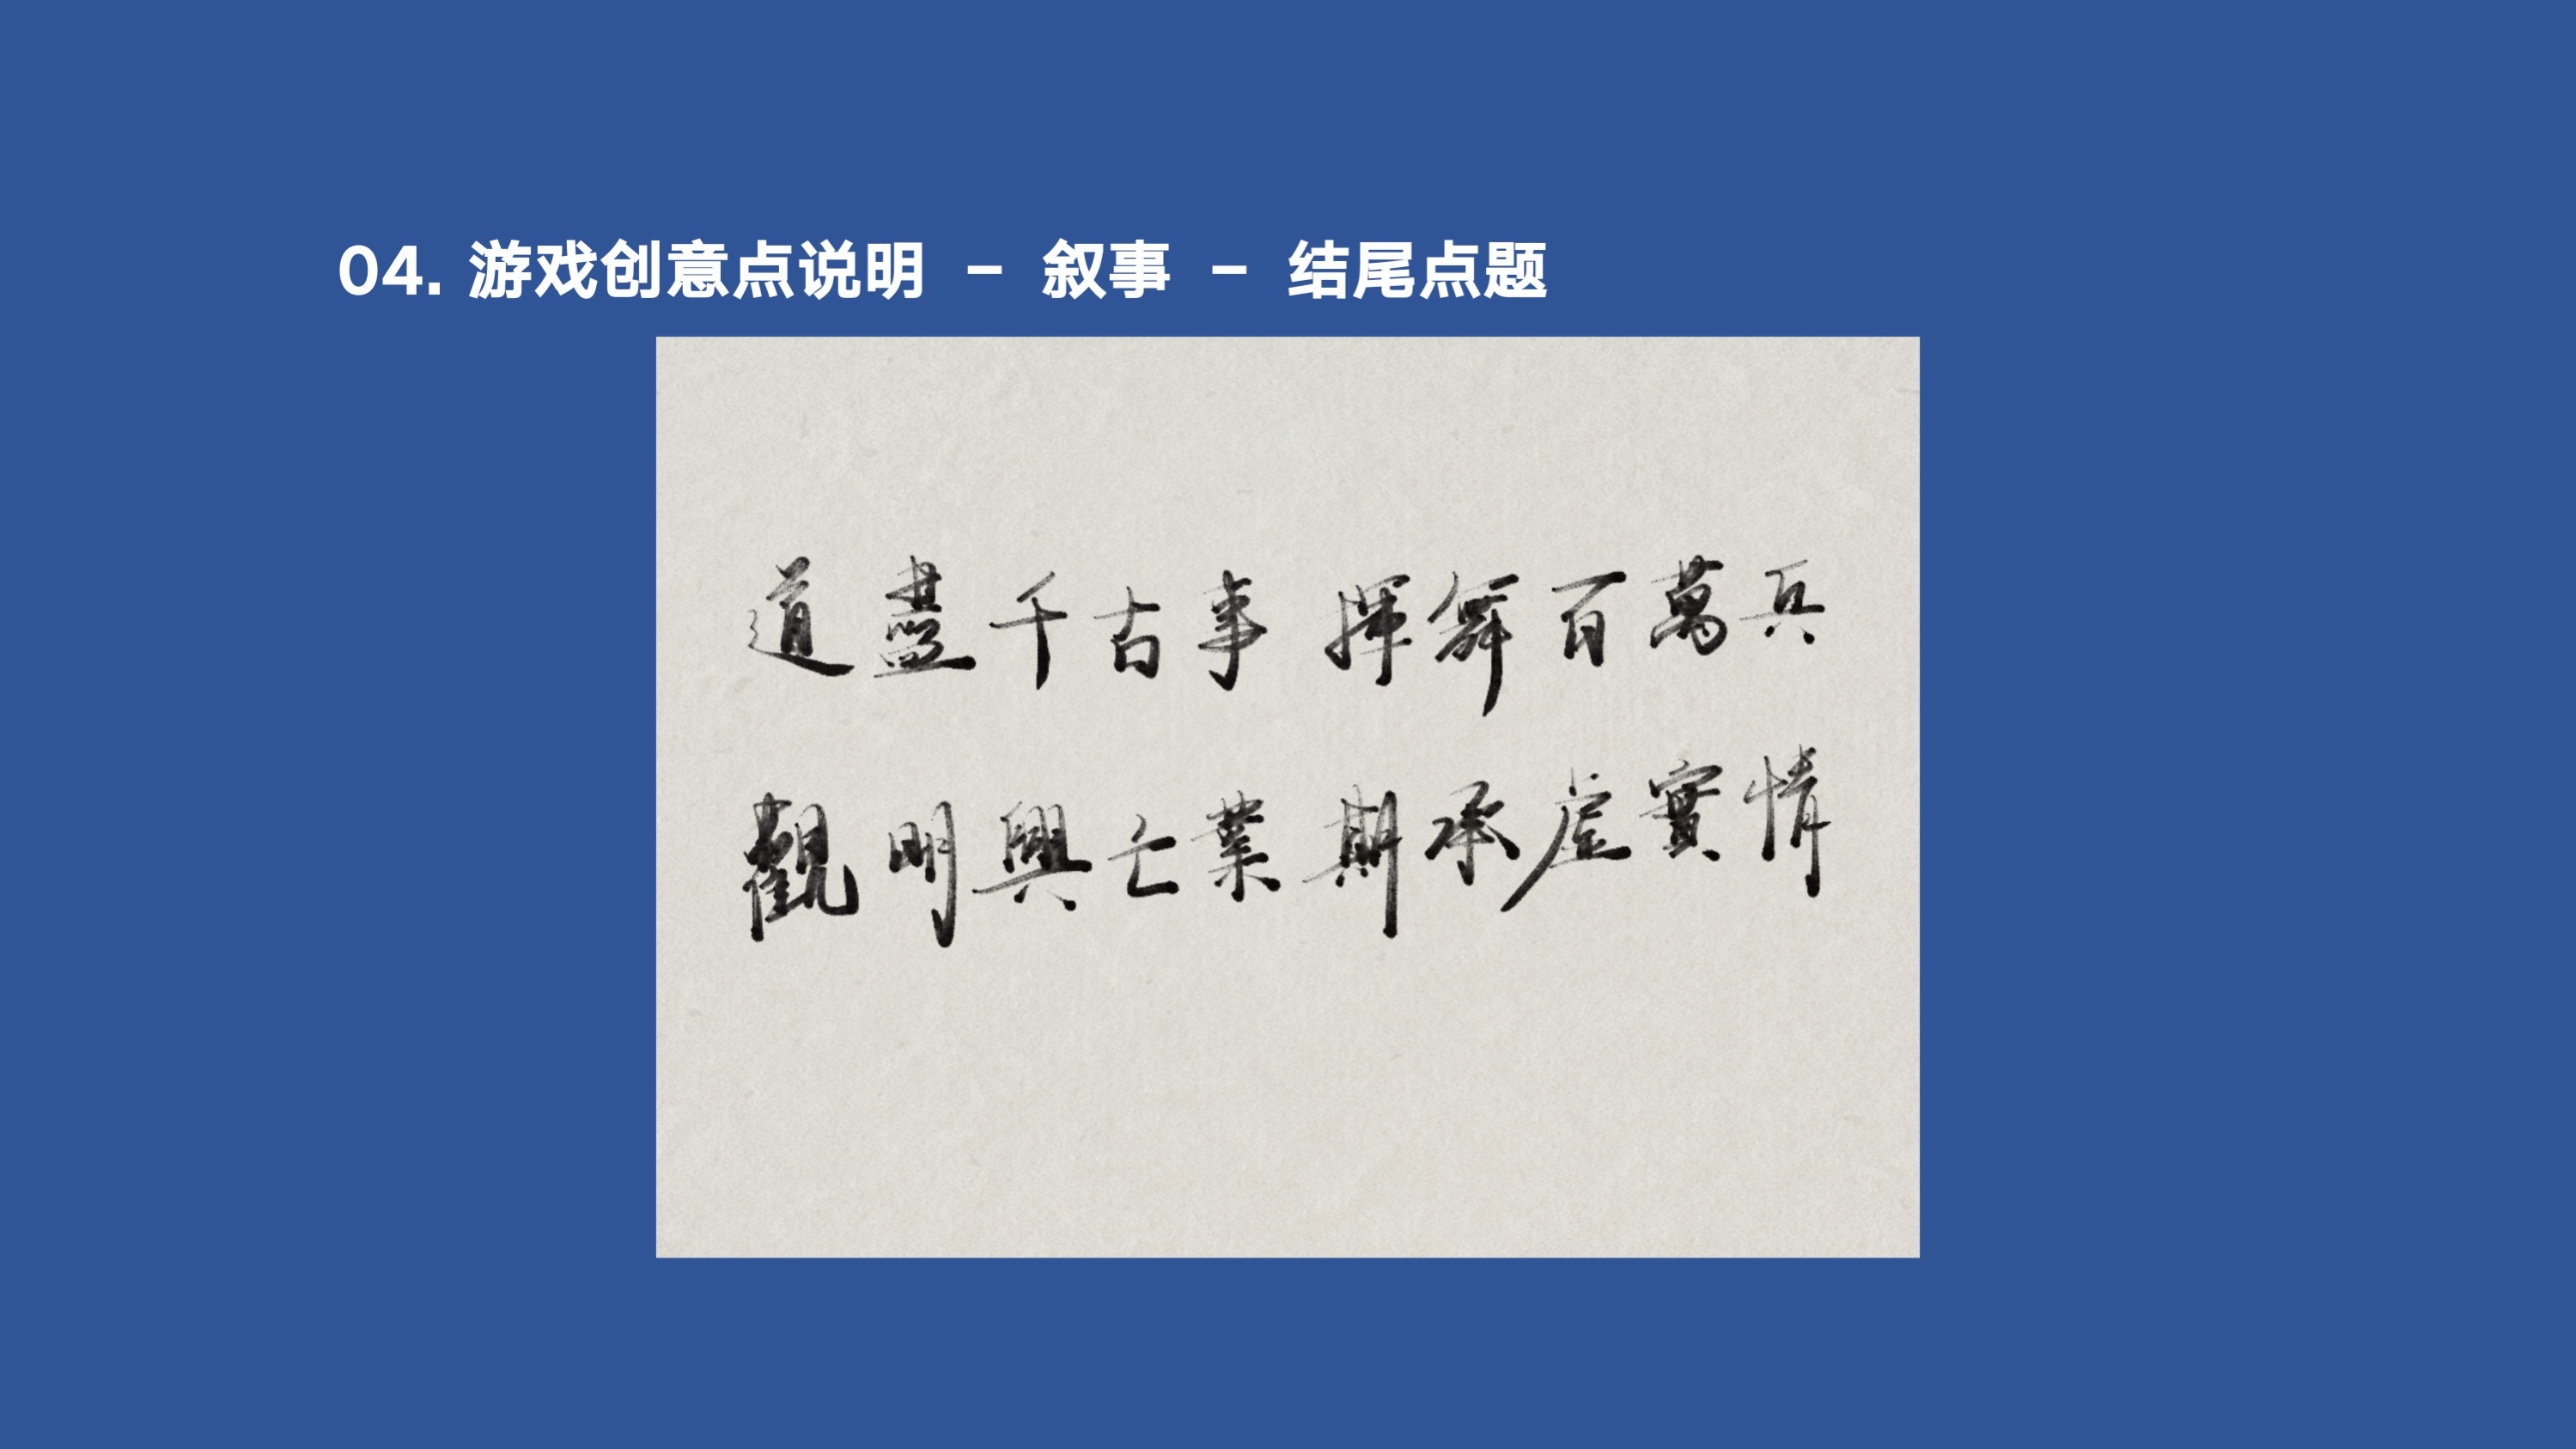 04. 游戏创意点说明 - 叙事 - 结尾点题
道盡千古事 揮舞百萬兵
觀明興亡業 期承虛實情